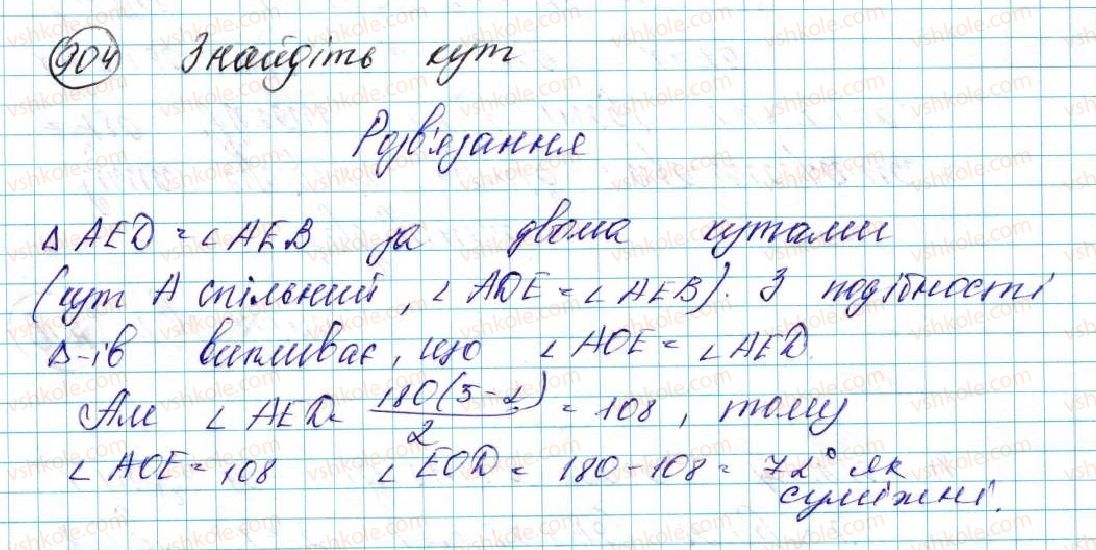 904 Знайдіть кут
Розв'язання
△ AED = ∠ AEB за двома кутами
(кут A спільний, ∠ ADE = ∠ AEB). З подібності
△-ів випливає, що ∠ AOE = ∠ AED
Ам ∠ AED = 180(5-2)/2 = 108, тому
∠ AOE = 108 ∠ EOD = 180 - 108 = 72° як
суміжні.